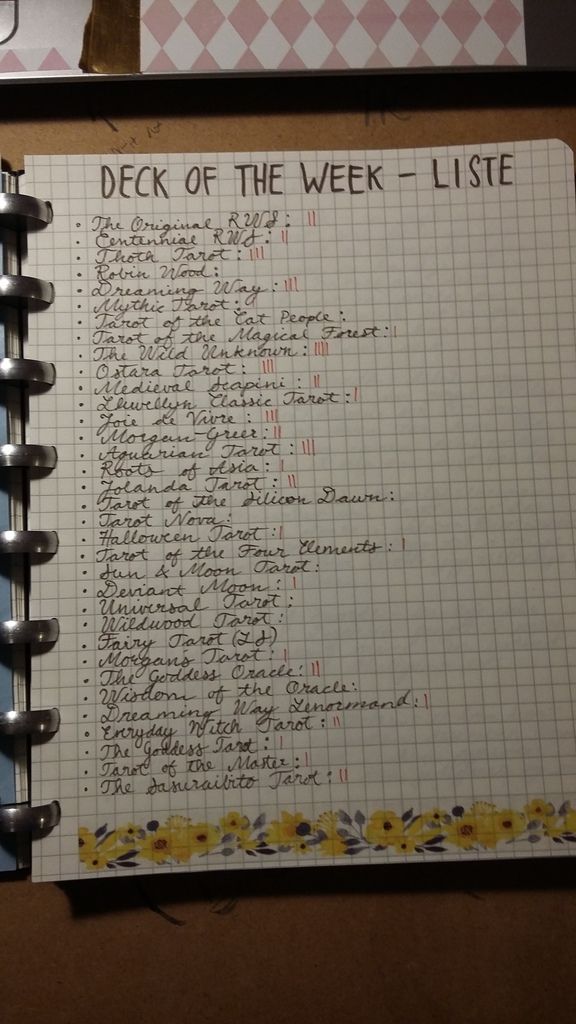 DECK OF THE WEEK - LISTE
• The Original RWS: ||
• Centennial RWS: ||
• Thoth Tarot: |||
• Robin Wood:
• Dreaming Way: |||
• Mythic Tarot: |
• Tarot of the Cat People:
• Tarot of the Magical Forest: |
• The Wild Unknown: ||||
• Ostara Tarot: |||
• Medieval Scapini: ||
• Llewellyn Classic Tarot: |
• Joie de Vivre: |||
• Morgan-Greer: ||
• Aquarian Tarot: |||
• Roots of Asia: |
• Jolanda Tarot: ||
• Tarot of the Silicon Dawn:
• Tarot Nova:
• Halloween Tarot: |
• Tarot of the Four Elements: |
• Sun & Moon Tarot:
• Deviant Moon: |
• Universal Tarot:
• Wildwood Tarot:
• Fairy Tarot (LS)
• Morgan's Tarot: |
• The Goddess Oracle: ||
• Wisdom of the Oracle:
• Dreaming Way Lenormand: |
• Everyday Witch Tarot: ||
• The Goddess Tarot: |
• Tarot of the Master: |
• The Sasuraibito Tarot: ||